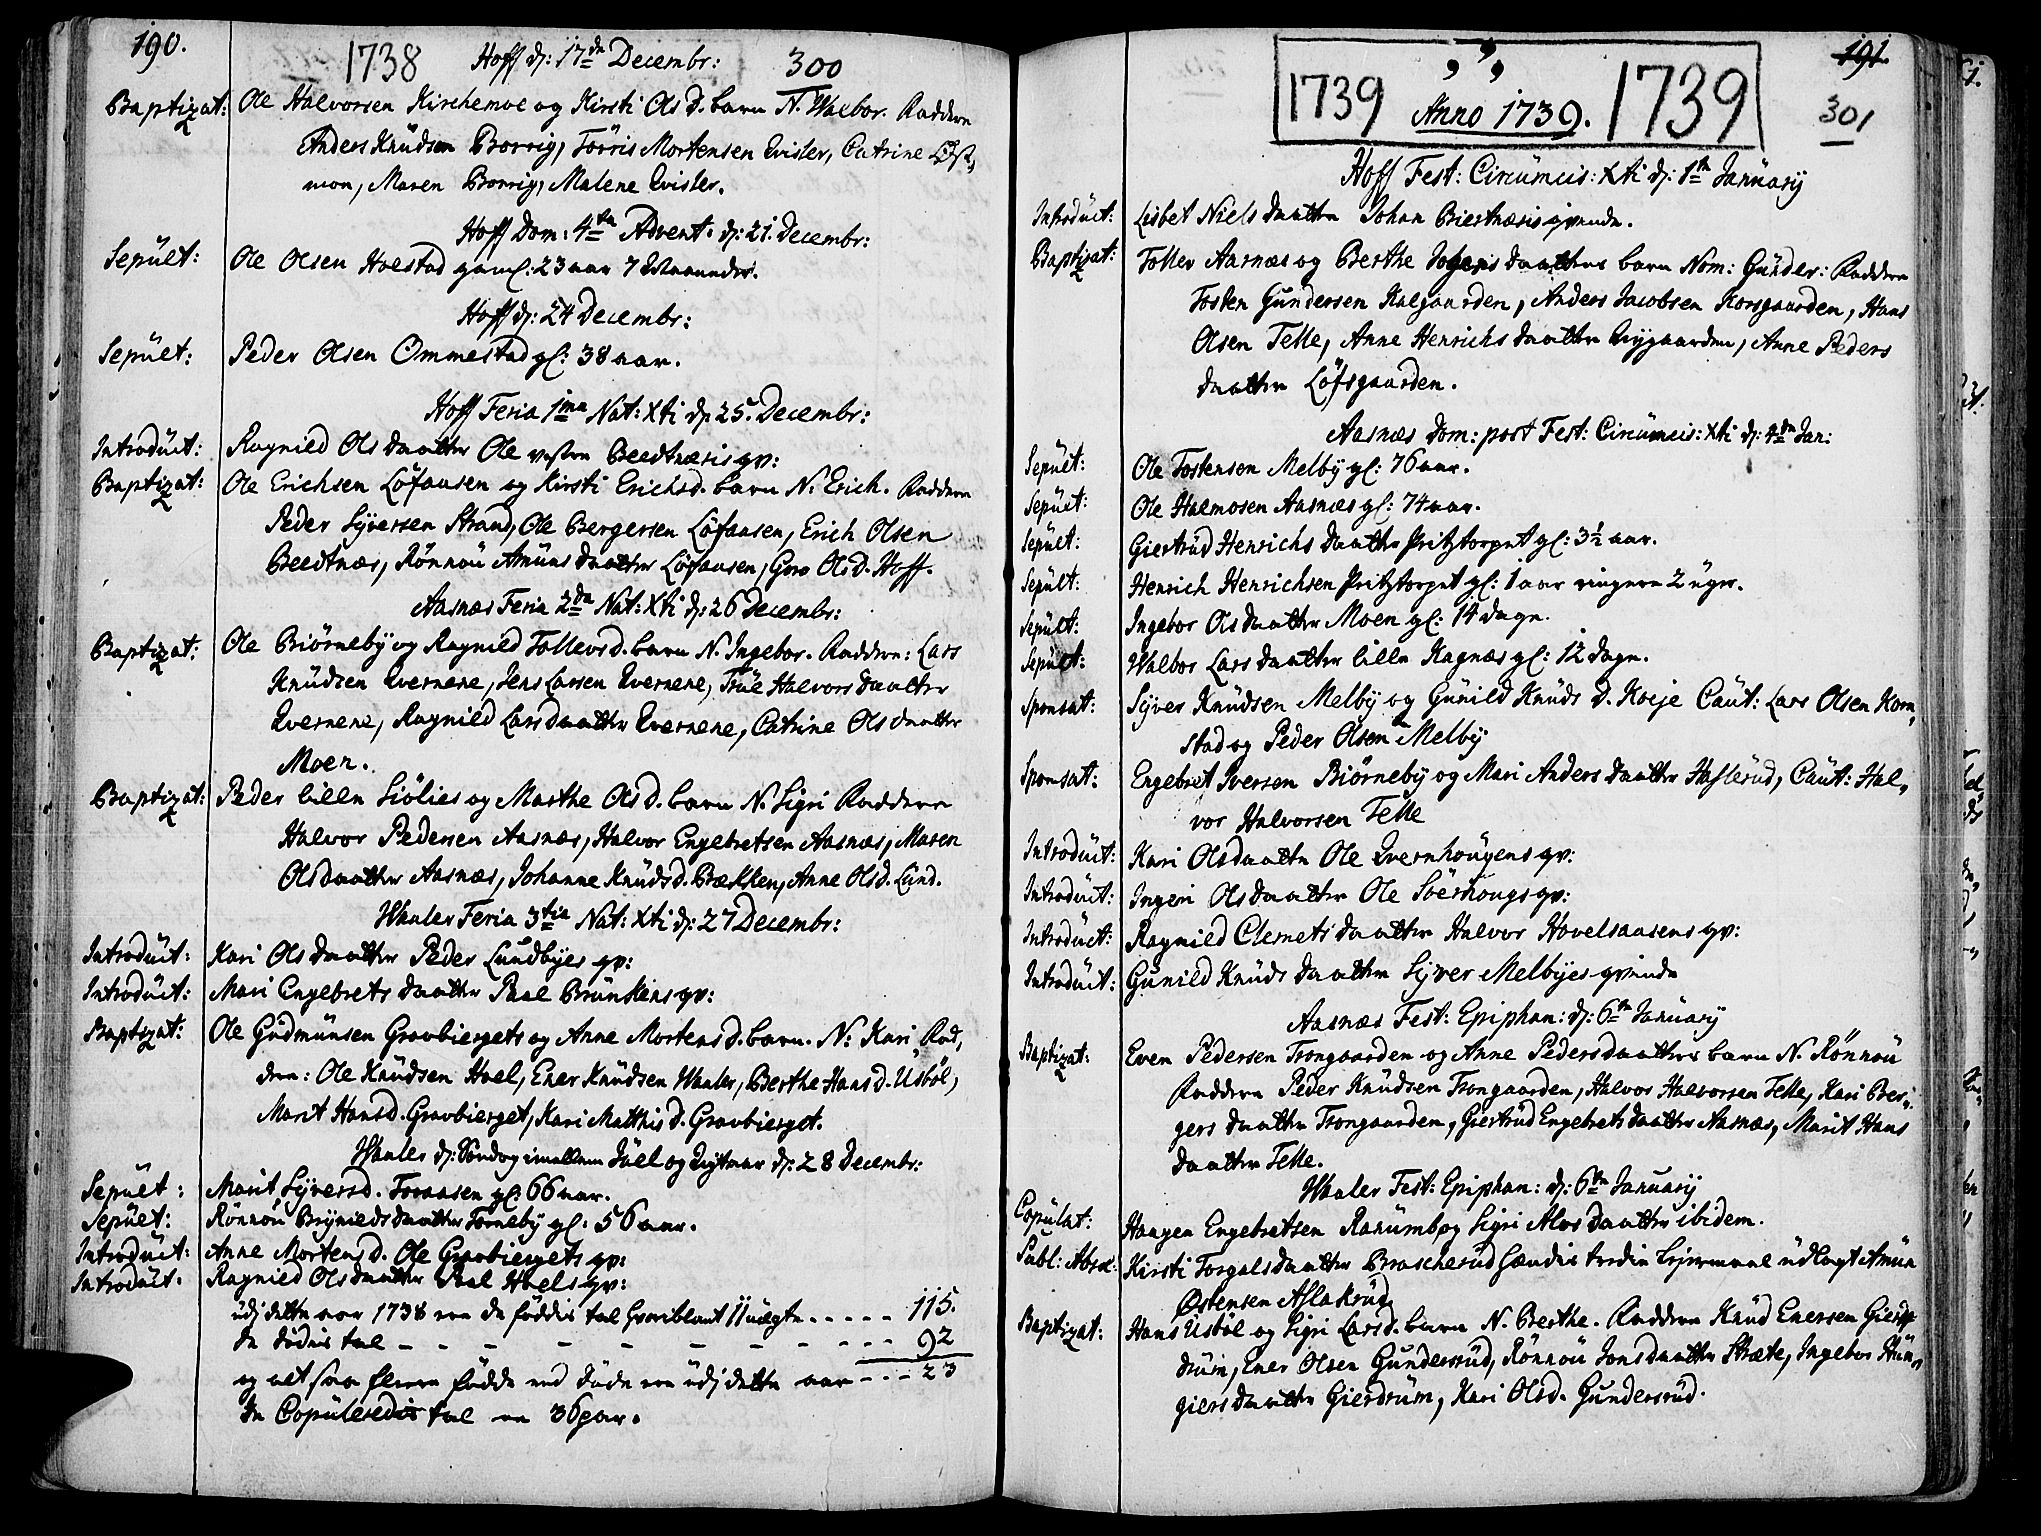 190.
1738 Hoff d: 17de Decembr: 300
Baptizat: Ole Halvorsen Kirchemoe og Kirsti Ols d. barn N. Walbor. Faddere
Anders Knüdsen Borrig, Törris Mortensen Qvisler, Catrine
mon, Maren Borrig, Malene Qvisler.
Hoff Dom: 4ta Advent: d: 21. Decembr:
Sepült: Ole Olsen Holstad gaml: 23 aar 7 Maaneder.
Hoff d: 24 Decembr:
Sepült: Peder Olsen Ommestad gl: 38 aar.
Hoff Feria 1ma Nat: Xti d: 25. Decembr:
Introdüct: Ragnild Ols daatter Ole vestre Beedtnæsis qv:
Baptizat: Ole Erichsen Löfaasen og Kirsti Erichsd. barn N. Erich. Faddere
Peder Syversen Strand, Ole Bergersen Löfaasen, Erich Olsen
Beedtnæs, Rönnou Amünds daatter Löfaasen, Goro Olsd. Hoff.
Aasnæs Feria 2da Nat: Xti d: 26 Decembr:
Baptizat: Ole Biörneby og Ragnild Tollevsd. barn N. Ingebor. Faddere: Lars
Knüdsen Qvernene, Jens Larsen Qvernene, Trüe Halvors daatter
Qvernene, Ragnild Lars daatter Qvernene, Catrine Ols daatter
Moen.
Baptizat: Peder lille Siölies og Marthe Ols d. barn N. Sigri Faddere
Halvor Pedersen Aasnæs, Halvor Engebretsen Aasnæs, Maren
Olsdaatter Aasnæs, Johanne Knüdsd. Bækken, Anne Olsd. Lünd.
Waaler Feria 3tia Nat: Xti d: 27 Decembr:
Introdüct: Kari Ols daatter Peder Lundbyes qv:
Introdüct: Mari Engebrets daatter Paal Brünkens qv:
Baptizat: Ole Güdmünsen Gravbiergets og Anne Mortens d. barn. N: Kari Fad,
dere: Ole Knüdsen Hoel, Ener Knüdsen Waaler, Berthe Hans d. Üsböl,
Marit Hansd. Gravbierget, Kari Matthis d. Gravbierget.
Waaler d: Söndag imellem Jüel og Nytaar d: 28 Decembr:
Sepült: Marit Syversd. Foraasen gl: 66 aar.
Sepült: Rönnou Brynildsdaatter Torneby gl: 56 aar.
Introdüct: Anne Mortens d. Ole Gravbiergets qv:
Introdüct: Ragnild Ols daatter Paal Hoels qv:
üdj dette aar 1738 ere de föddis tal hvoriblant 11 uægte - - - - - 115.
de dödis tal - - - - - - - - - 92
og altsaa fleere födde end döde ere üdj dette aar - - - 23
de Copüleredis tal er 36 par.
191.
1739 Anno 1739. 1739 301
Hoff Fest: Circumcis: Xti d: 1te January
Introdüct: Lisbet Niels daatter Johan Biertnæsis qvinde.
Baptizat: Tollev Aasnæs og Berthe Jogens daatters barn Nom: Günder: Faddere
Tosten Gundersen Kalgaarden, Anders Jacobsen Korsgaarden, Hans
Olsen Telle, Anne Henrichs daatter Nygaarden, Anne Peders
daatter Löfsgaarden.
Aasnæs Dom: post Fest: Circumcis: Xti d: 4de Jan:
Sepült: Ole Tostensen Melby gl: 76 aar.
Sepült: Ole Halmosen Aasnæs gl: 74 aar.
Sepült: Giertrüd Henrichs daatter Pritztorpet gl: 3½ aar.
Sepült: Henrich Henrichsen Pritztorpet gl: 1 aar ringere 2 uger.
Sepült: Ingebor Ols daatter Moen gl: 14 dage.
Sepült: Walbor Lars daatter lille Kagnæs gl: 12 dage.
Sponsat: Syver Knüdsen Melby og Günild Knüds d. Koeje Caut: Lars Olsen Korn,
stad og Peder Olsen Melby
Sponsat: Engebret Iversen Biörneby og Mari Anders daatter Haslerüd, Caüt: Hal,
vor Halvorsen Telle
Introdüct: Kari Olsdaatter Ole Qvernhougens qv:
Introdüct: Ingeri Olsdaatter Ole Soerhougs qv:
Introdüct: Ragnild Clemets daatter Halvor Hovelsaasens qv:
Introdüct: Günild Knüds daatter Syver Melbyes qvinde
Aasnæs Fest: Epiphan: d: 6te January
Baptizat: Even Pedersen Trongaarden og Anne Pedersdaatters barn N. Rönnou
Faddere Peder Knüdsen Trongaarden, Halvor Halvorsen Telle, Kari Ber,
gers daatter Trongaarden, Giertrüd Engebrets daatter Aasnæs, Marit Hans
daatter Telle.
Waaler Fest: Epiphan: d: 6te January
Copülat: Haagen Engebretsen Ranum og Sigri Alvs daatter ibidem.
Publ: Absol: Kirsti Torgals daatter Brascherüd hændis tredie Lejermaal üdlagt Amün
Östensen Aslakrüd
Baptizat: Hans Üsböl og Sigri Larsd. barn N. Berthe. Faddere Knüd Enersen Gier
drüm, Ener Olsen Gundersrüd, Rönnou Jons daatter Stræte, Ingebor Hün,
giers daatter Gierdrüm, Kari Olsd. Gundersrüd.